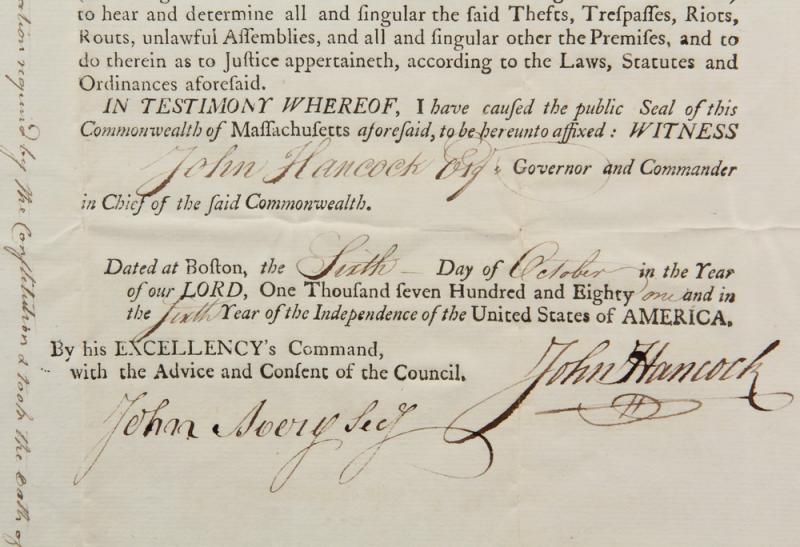 to hear and determine all and ſingular the ſaid Thefts, Treſpaſſes, Riots,
Routs, unlawful Aſſemblies, and all and ſingular other the Premiſes, and to
do therein as to Juſtice appertaineth, according to the Laws, Statutes and
Ordinances aforeſaid.
IN TESTIMONY WHEREOF, I have cauſed the public Seal of this
Commonwealth of Maſſachuſetts aforeſaid, to be hereunto affixed: WITNESS
John Hancock Esq. Governor and Commander
in Chief of the ſaid Commonwealth.
Dated at Boſton, the Sixth Day of October in the Year
of our LORD, One Thouſand ſeven Hundred and Eighty one and in
the ſixth Year of the Independence of the United States of AMERICA.
By his EXCELLENCY's Command,
with the Advice and Conſent of the Council.
John Hancock
John Avery Secy
ation required by the Conſtitution & took the oath of